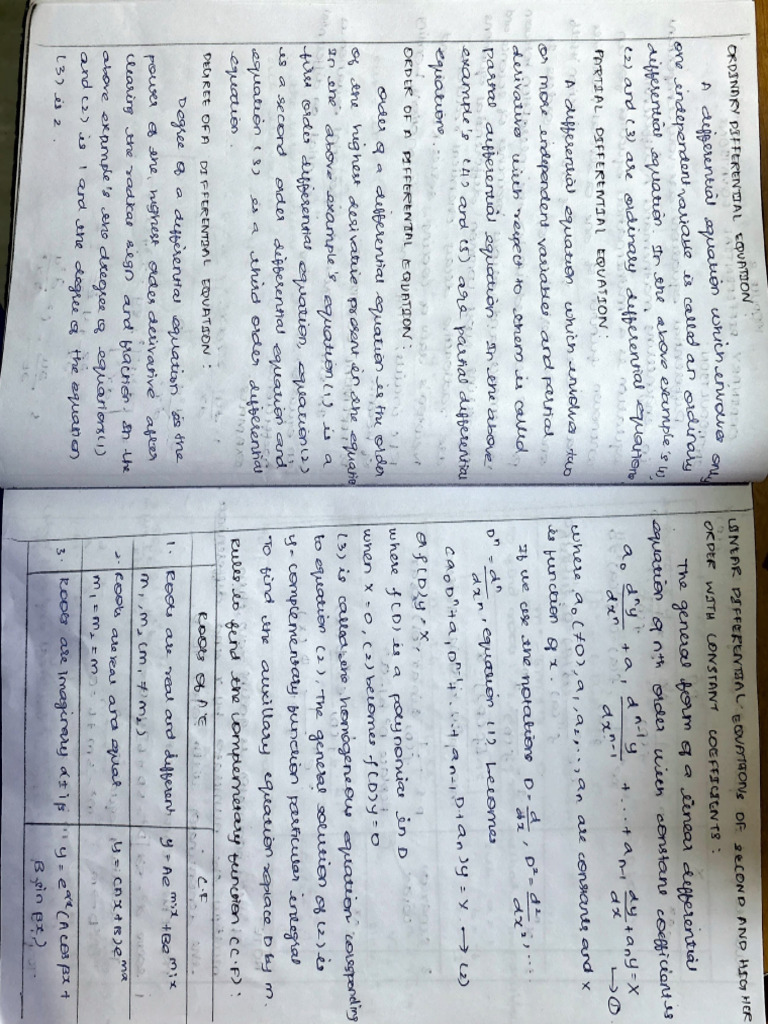 ORDINARY DIFFERENTIAL EQUATION
A differential equation which involves only
one independent variable is called an ordinary
differential equation In the above example's (1),
(2) and (3) are ordinary differential equations
PARTIAL DIFFERENTIAL EQUATION:
A differential equation which involves two
or more independent variables and partial
derivatives with respect to them is called
partial differential equation. In the above
example's (4) and (5) are partial differential
equations.
ORDER OF A DIFFERENTIAL EQUATION:
Order of a differential equation is the order
of the highest derivative present in the equation
In the above example's equation (1) is a
first order differential equation, equation (2)
is a second order differential equation and
equation (3) is a third order differential
equation.
DEGREE OF A DIFFERENTIAL EQUATION:
Degree of a differential equation is the
power of the highest order derivative after
clearing the radical sign and fraction in the
above example's the degree of equation (1)
and (2) is 1 and the degree of the equation
(3) is 2.
LINEAR DIFFERENTIAL EQUATIONS OF SECOND AND HIGHER
ORDER WITH CONSTANT COEFFICIENTS:
The general form of a linear differential
equation of nth order with constant coefficient is
a₀ dⁿy/dxⁿ + a₁ dⁿ⁻¹y/dxⁿ⁻¹ + ... + aₙ₋₁ dy/dx + aₙy = X → ①
where a₀ (≠0), a₁, a₂, ..., aₙ are constants and X
is function of x.
If we use the notations D = d/dx, D² = d²/dx², ...
Dⁿ = dⁿ/dxⁿ, equation (1) becomes
(a₀Dⁿ + a₁Dⁿ⁻¹ + ... + aₙ₋₁D + aₙ)y = X → (2)
or f(D)y = X,
where f(D) is a polynomial in D
when X = 0, (2) becomes f(D)y = 0
(3) is called the homogeneous equation corresponding
to equation (2). The general solution of (2) is
y = complementary function particular integral
To find the auxillary equation replace D by m.
Rules to find the complementary function (C.F):
Roots of A.E C.F
1. Roots are real and different y = Ae^m₁x + Be^m₂x
m₁, m₂ (m₁ ≠ m₂)
2. Roots are real and equal y = (Ax + B)e^mx
m₁ = m₂ = m
3. Roots are imaginary α ± iβ y = e^αx (A cos βx +
B sin βx)